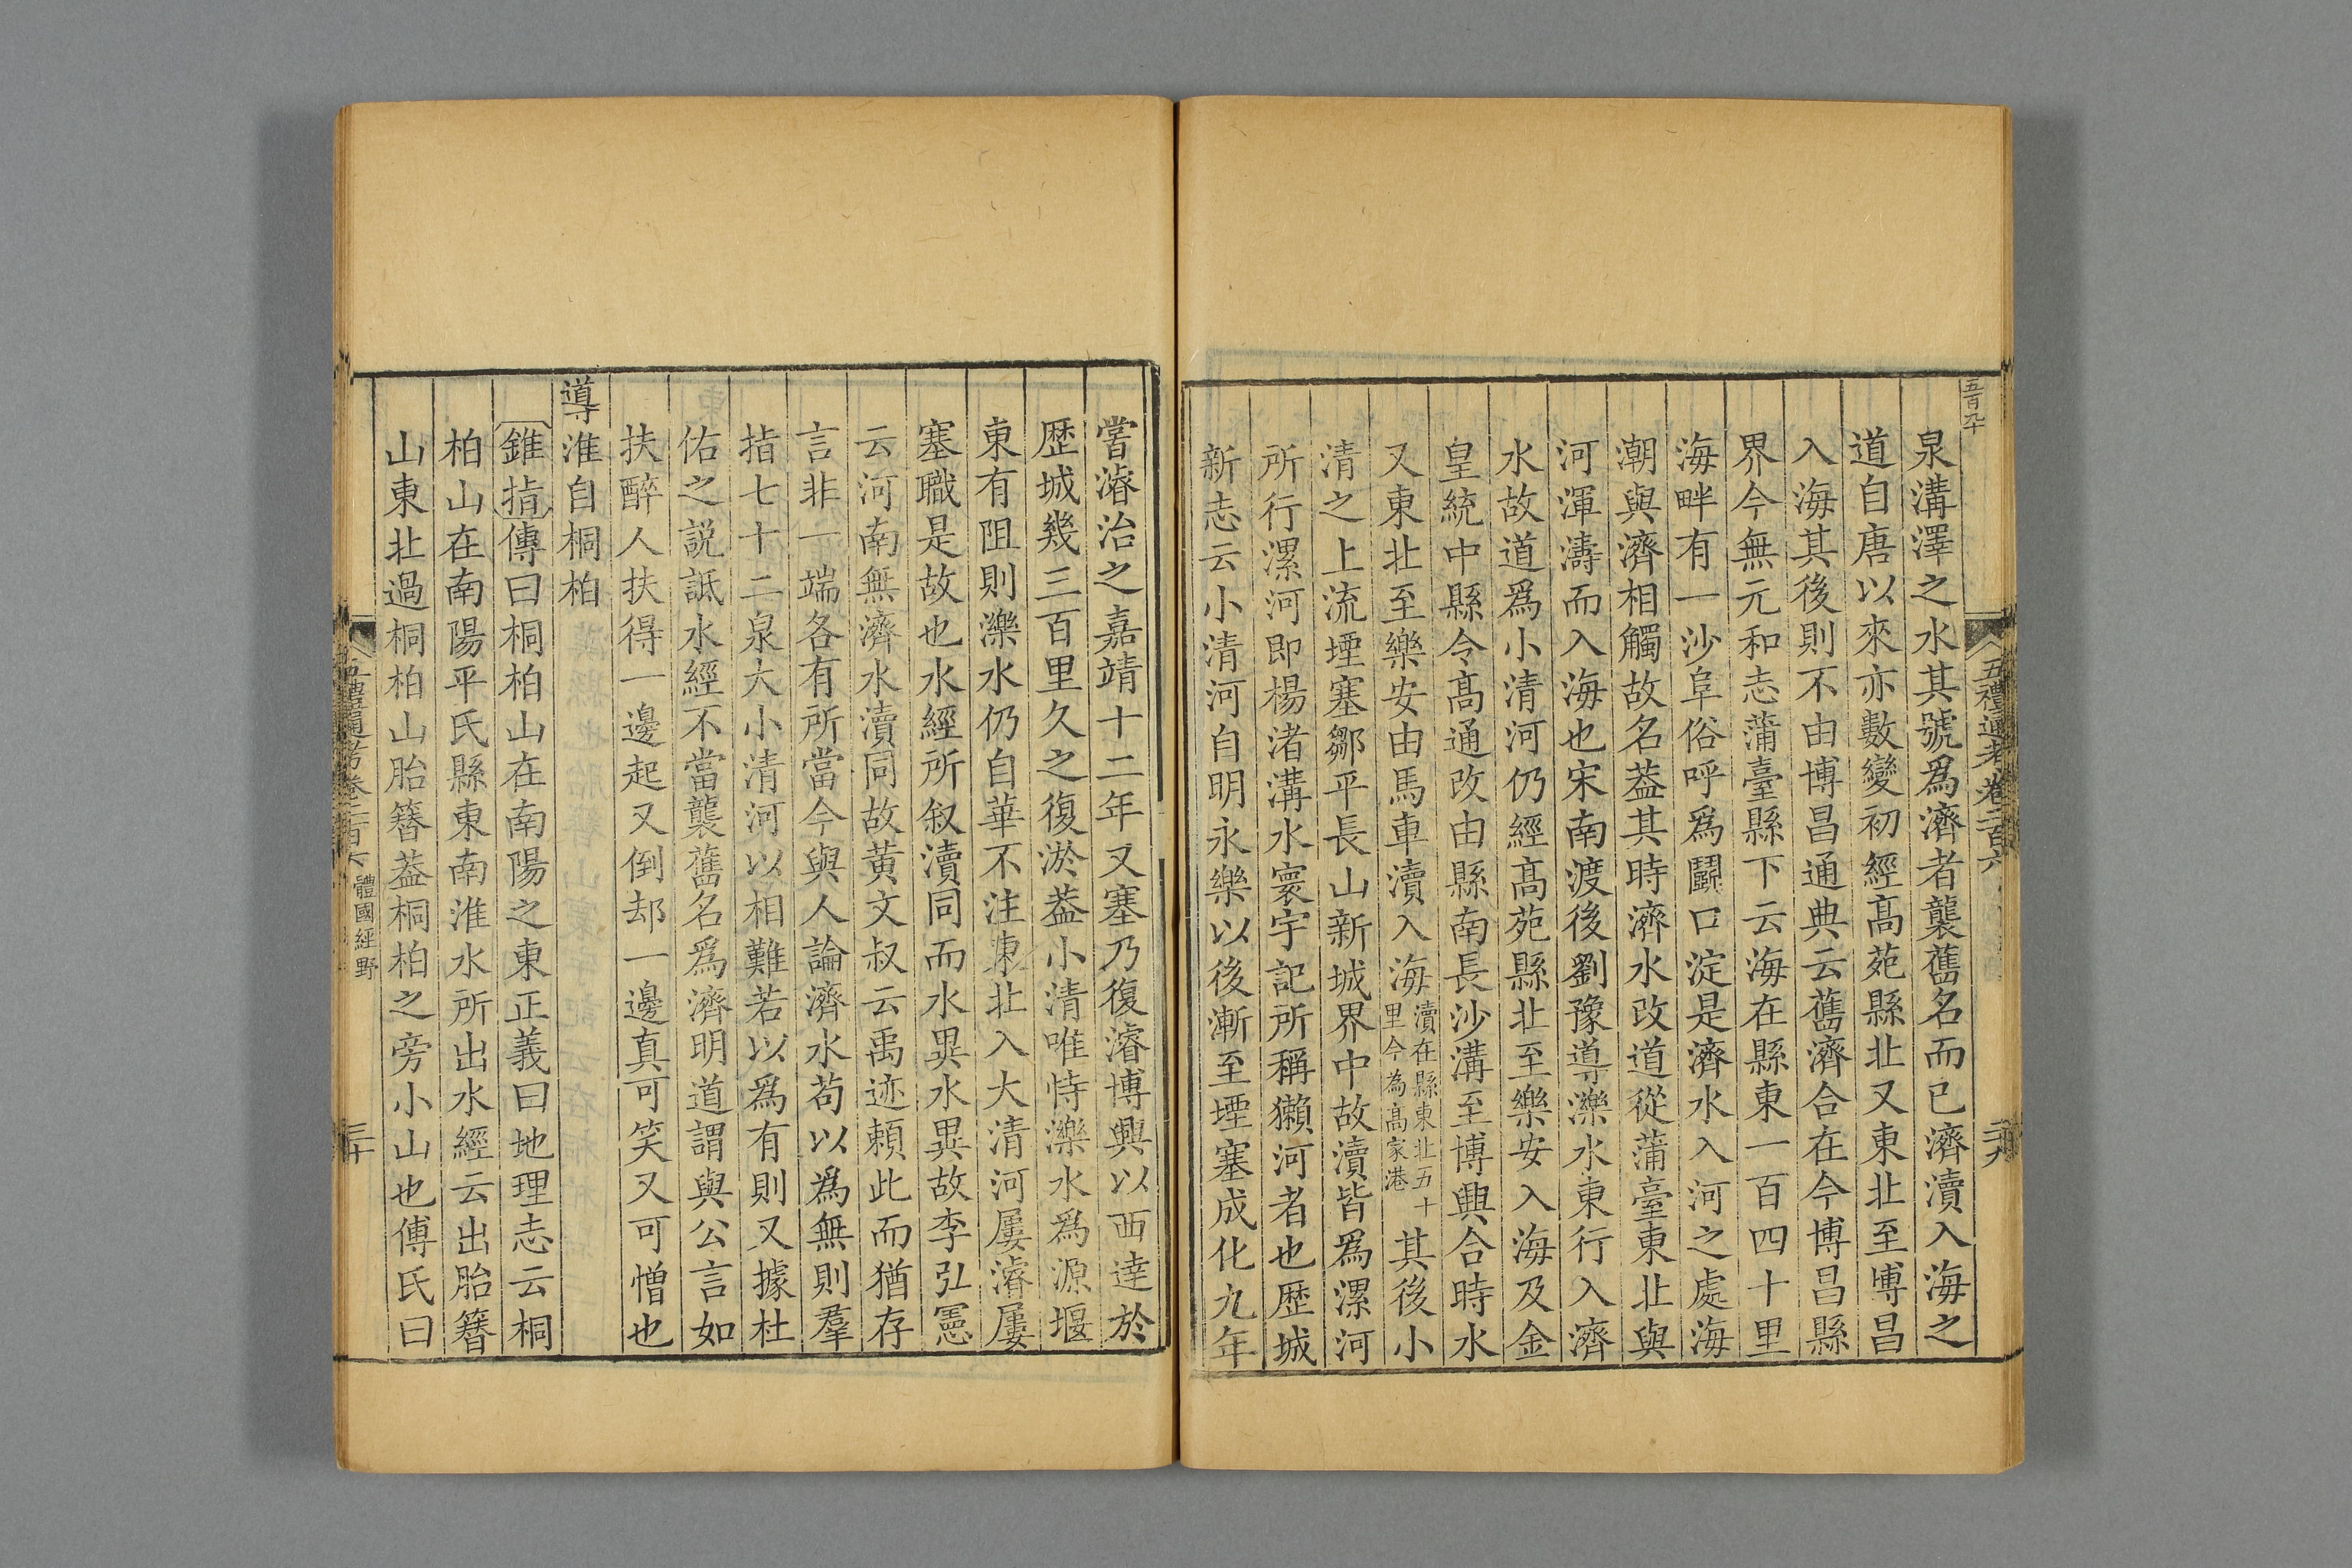 五禮通考卷二百六
泉溝澤之水其號爲濟者襲舊名而已濟瀆入海之
道自唐以來亦數變初經高苑縣北又東北至博昌
入海其後則不由博昌通典云舊濟合在今博昌縣
界今無元和志蒲臺縣下云海在縣東一百四十里
海畔有一沙阜俗呼爲鬭口淀是濟水入河之處海
潮與濟相觸故名葢其時濟水改道從蒲臺東北與
河渾濤而入海也宋南渡後劉豫導濼水東行入濟
水故道爲小清河仍經高苑縣北至樂安入海及金
皇統中縣令高通改由縣南長沙溝至博興合時水
又東北至樂安由馬車瀆入海瀆在縣東北五十里今為高家港其後小
清之上流堙塞鄒平長山新城界中故瀆皆爲漯河
所行漯河即楊渚溝水寰宇記所稱獺河者也歴城
新志云小清河自明永樂以後漸至堙塞成化九年
嘗濬治之嘉靖十二年又塞乃復濬博興以西逹於
歴城幾三百里久之復淤葢小清唯恃濼水爲源堰
東有阻則濼水仍自華不注東北入大清河屢濬屢
塞職是故也水經所叙瀆同而水異水異故李弘憲
云河南無濟水瀆同故黄文叔云禹迹頼此而猶存
言非一端各有所當今與人論濟水苟以爲無則羣
指七十二泉大小清河以相難若以爲有則又據杜
佑之説詆水經不當襲舊名爲濟明道謂與公言如
扶醉人扶得一邊起又倒却一邊真可笑又可憎也
導淮自桐柏
錐指傳曰桐柏山在南陽之東正義曰地理志云桐
柏山在南陽平氏縣東南淮水所出水經云出胎簪
山東北過桐柏山胎簪葢桐柏之旁小山也傅氏曰
五禮通考卷二百六
體國經野
三十